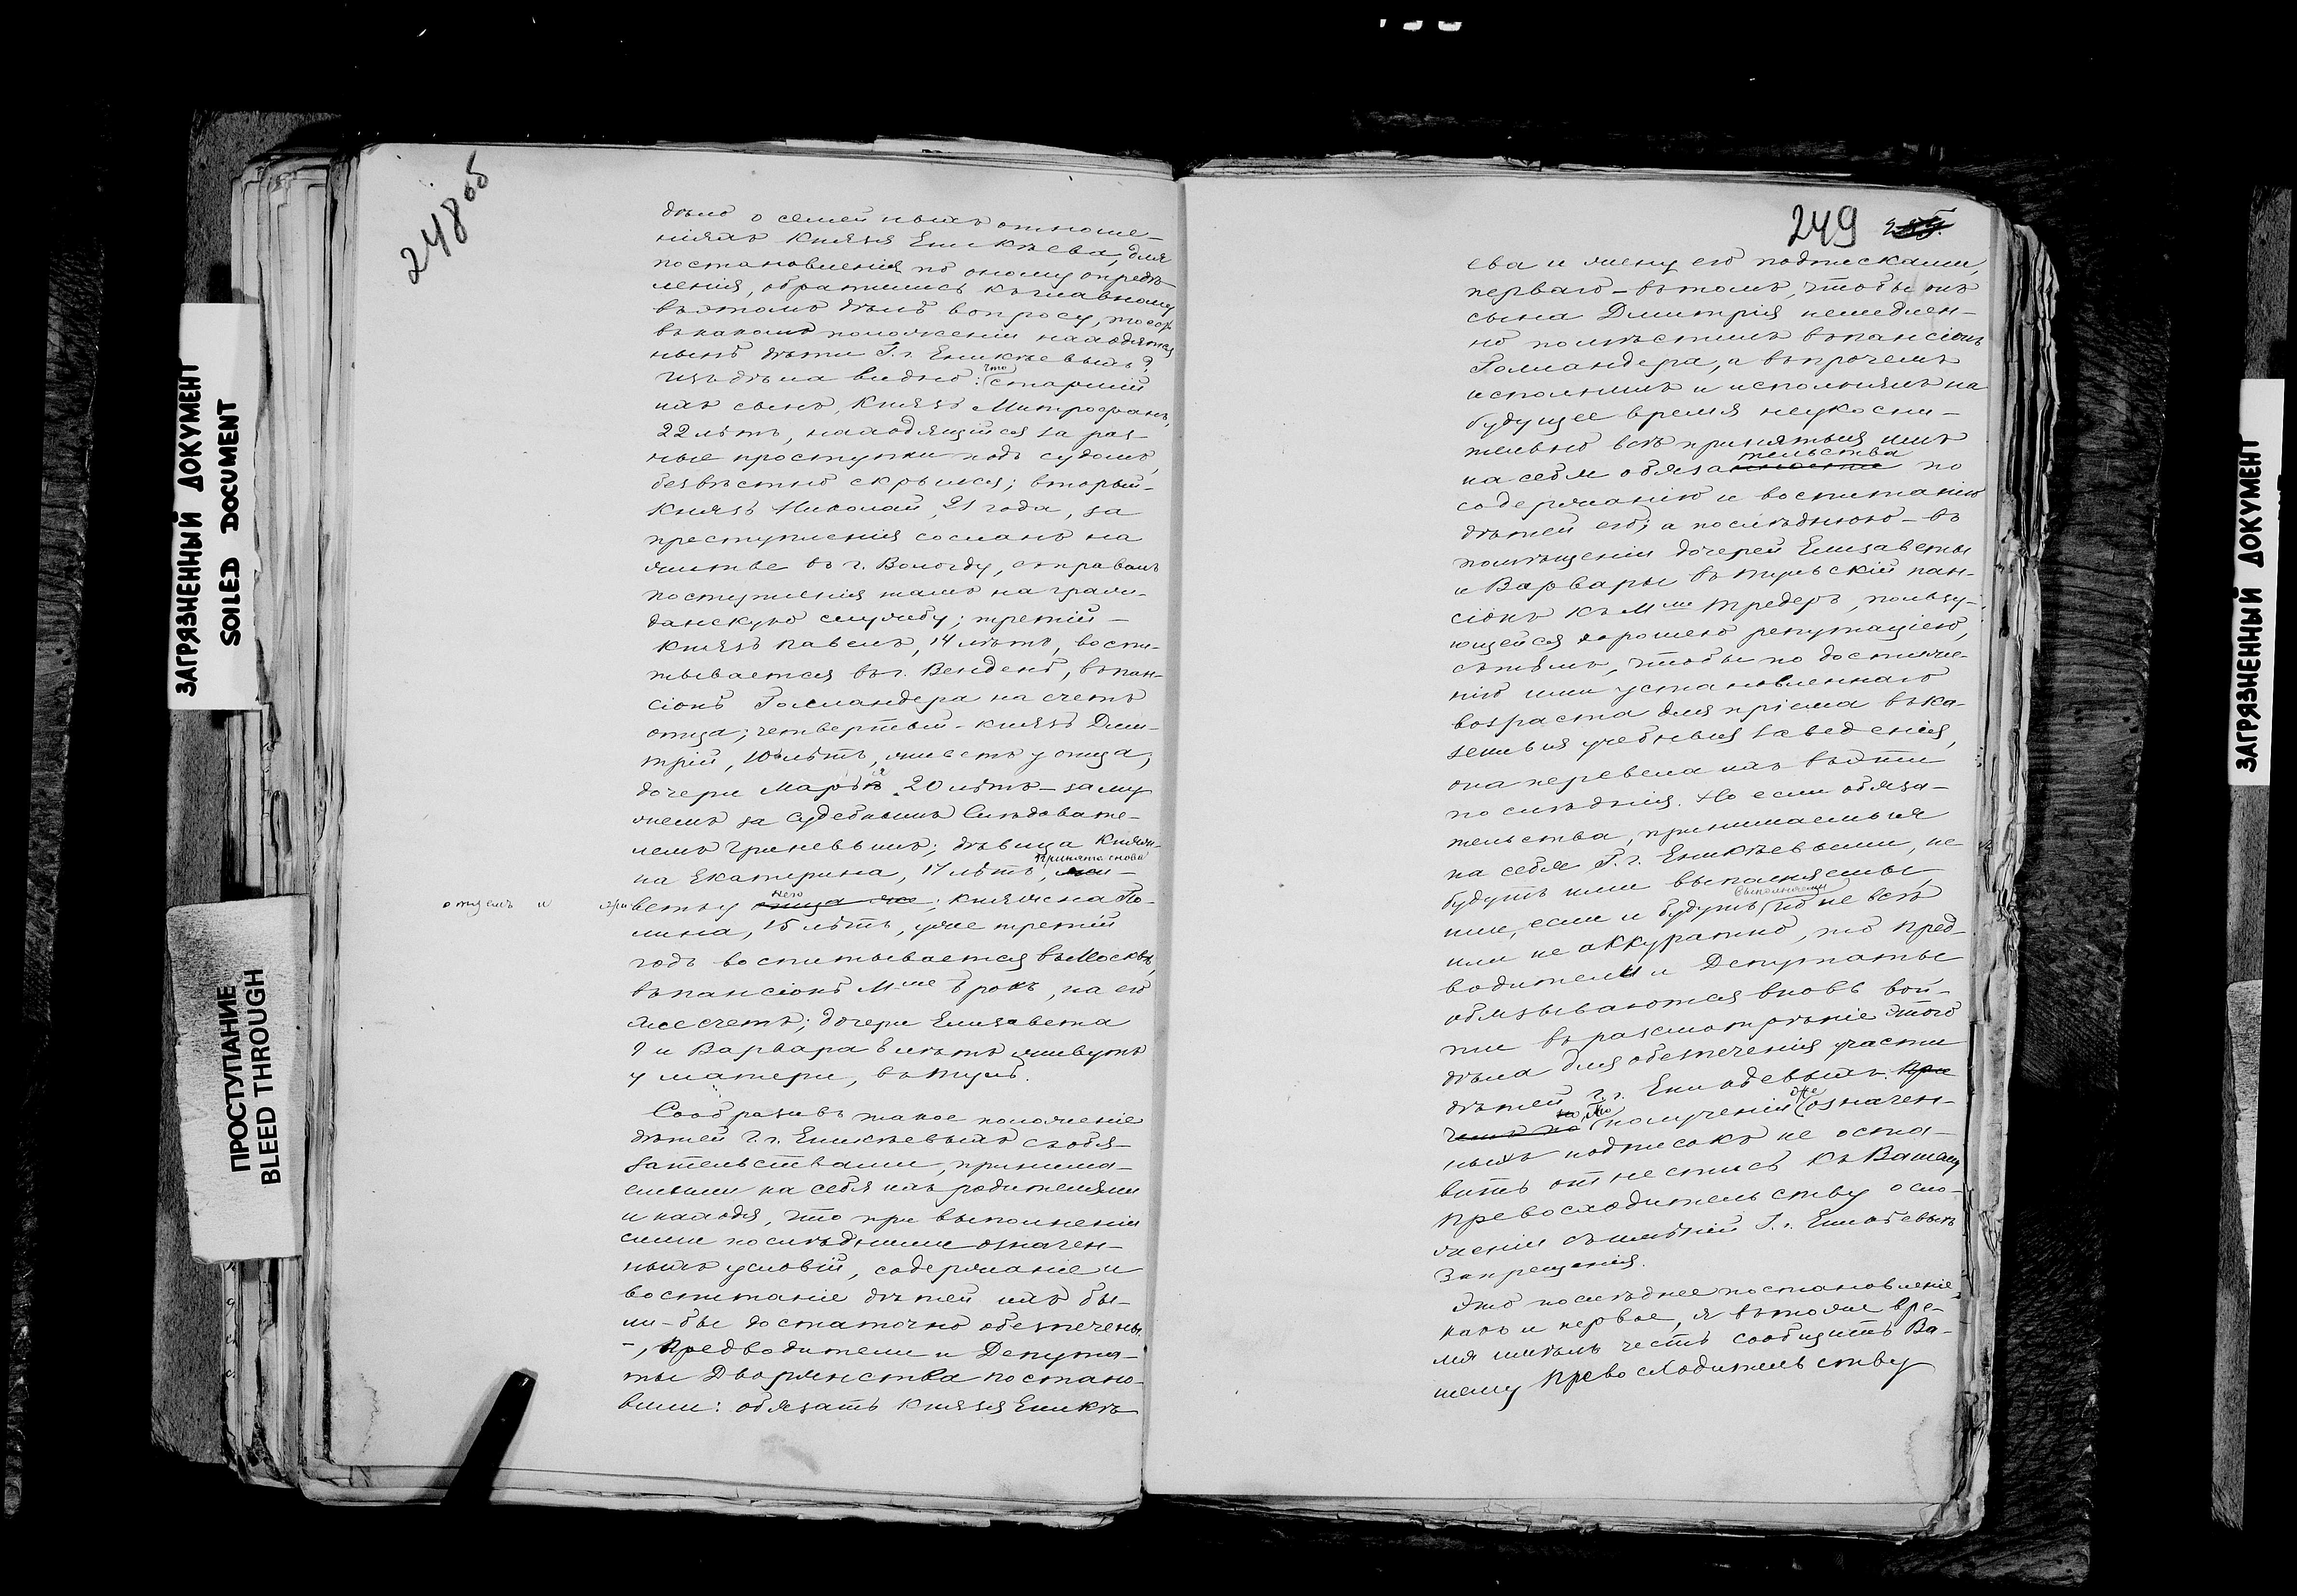 248 об
дѣло о семейныхъ отноше-
ніяхъ Князя Еникѣева, для
постановленія по оному опредѣ-
ленія, обратились къ главному
въ этомъ дѣлѣ вопросу, то есть
въ какомъ положеніи находятся
нынѣ дѣти Г.г. Еникѣевыхъ?
Изъ дѣла видно: что старшій
ихъ сынъ, Князь Митрофанъ,
22 лѣтъ, находящійся за раз-
ные проступки подъ судомъ,
безвѣстно скрылся; вторый-
Князь Николай, 21 года, за
преступленія сосланъ на
житье въ г. Вологду, съ правомъ
поступленія тамъ на граж-
данскую службу; третій-
Князь Павелъ, 14 лѣтъ, воспи-
тывается въ г. Венденѣ, въ пан-
сіонѣ Голландера на счетъ
отца; четвертый- Князь Дми-
трій, 10 лѣтъ, живетъ у отца;
дочери Марья 20 лѣтъ- заму-
жемъ за Судебнымъ Слѣдовате-
лемъ Гриневымъ; дѣвица Княж-
на Екатерина, 17 лѣтъ, принята снова
отцемъ и живетъ у него; княжна По-
лина, 15 лѣтъ, уже третій
годъ воспитывается въ Москвѣ,
въ пансіонѣ Мме Брокъ, на его
же счетъ; дочери Елизавета
9 и Варвара 8 лѣтъ живутъ
у матери, въ Тулѣ.
Сообразивъ такое положеніе
дѣтей Г.г. Еникѣевыхъ съ обя-
зательствами, принима-
емыми на себя ихъ родителями
и находя, что при выполненіи
сими послѣдними означен-
ныхъ условій, содержаніе и
воспитаніе дѣтей ихъ бы-
ли-бы достаточно обезпечены
-, Предводители и Депута-
ты Дворянства постано-
вили: обязать Князя Еникѣ
249
ева и жену его подписками,
перваго- въ томъ, чтобы онъ
сына Дмитрія немедлен-
но помѣстилъ въ пансіонъ
Голландера, а въ прочемъ
исполнилъ и исполнялъ на
будущее время неукосни-
тельно всѣ принятыя имъ
на себя обязательства по
содержанію и воспитанію
дѣтей его; а послѣднюю- въ
помѣщеніи дочерей Елизаветы
и Варвары въ тульскій пан-
сіонъ къ Мме Тредеръ, пользу-
ющейся хорошею репутаціею,
съ тѣмъ, чтобы по достиже-
ніи ими установленнаго
возраста для пріема въ ка-
зенныя учебныя заведенія,
она перевела ихъ въ эти
послѣднія. Но если обяза-
тельства, принимаемыя
на себя Г.г. Еникѣевыми, не
будутъ ими выполняемы,
или, если и будутъ выполняемы но не всѣ
или не аккуратно, то Пред-
водители и Депутаты
обязываются вновь вой-
ти въ разсмотрѣніе этого
дѣла для обезпеченія участи
дѣтей Г.г. Еникѣевыхъ. При
чемъ по По полученіи же означен-
ныхъ подписокъ не оста-
вить отнестись къ Вашему
Превосходительству о сло-
женіи съ имѣній Г.г. Еникѣевыхъ
запрещенія.
Это послѣднее постановленіе,
какъ и первое, я въ тоже вре-
мя имѣлъ честь сообщить Ва-
шему Превосходительству
ЗАГРЯЗНЕННЫЙ ДОКУМЕНТ
SOILED DOCUMENT
ПРОСТУПАНИЕ
BLEED THROUGH
ЗАГРЯЗНЕННЫЙ ДОКУМЕНТ